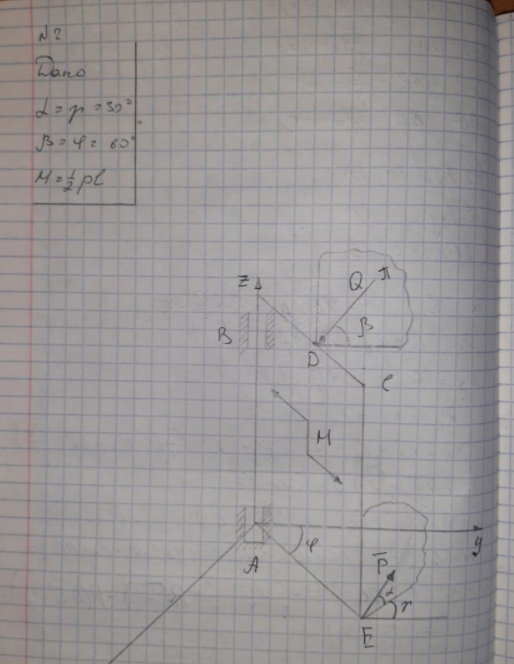 N2
Дано
α = γ = 30°
β = φ = 60°
M = 1/2 pl
Z
Q
π
β
B
D
C
M
φ
y
A
P̅
α
γ
E